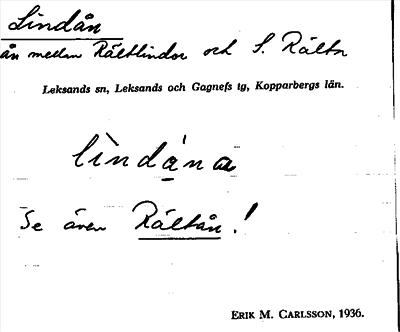 Lindån
ån mellan Rältlindor och S. Rälta
Leksands sn, Leksands och Gagnefs tg, Kopparbergs län.
lìndạ̀na
Se även Rältån.!
ERIK M. CARLSSON, 1936.